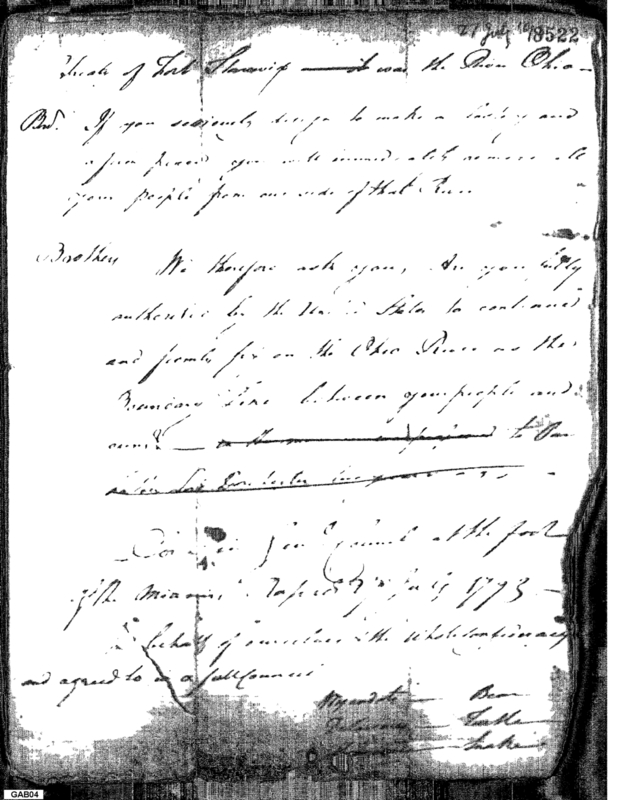 27 July 18522
Treaty of Fort Stanwix was the River Ohio
Brs. If you seriously design to make a lasting and
a firm peace you will immediately remove all
your people from our side of that River
Brothers We therefore ask you, Are you fully
authorised by the United States to continue
and firmly fix on the Ohio River as the
Boundary Line between your people and
ours? to
Done in Gen Council at the foot
of the Miami Rapids 27 July 1793
In behalf of ourselves & the whole Confederacy
and agreed to in a full Council
Wyandots Bear
Delawares Turtle
Snake
GAB04